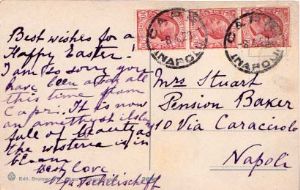 Best wishes for a
Happy Easter!
I am so sorry you
have been
this time from
Capri. It is now
an amethyst isle
full of beauty as
the wisteria is in
bloom
Best love
Mrs Stuart
Pension Baker
10 Via Caracciolo
Napoli
CAPRI
(NAPOLI)
CAPRI
(NAPOLI)